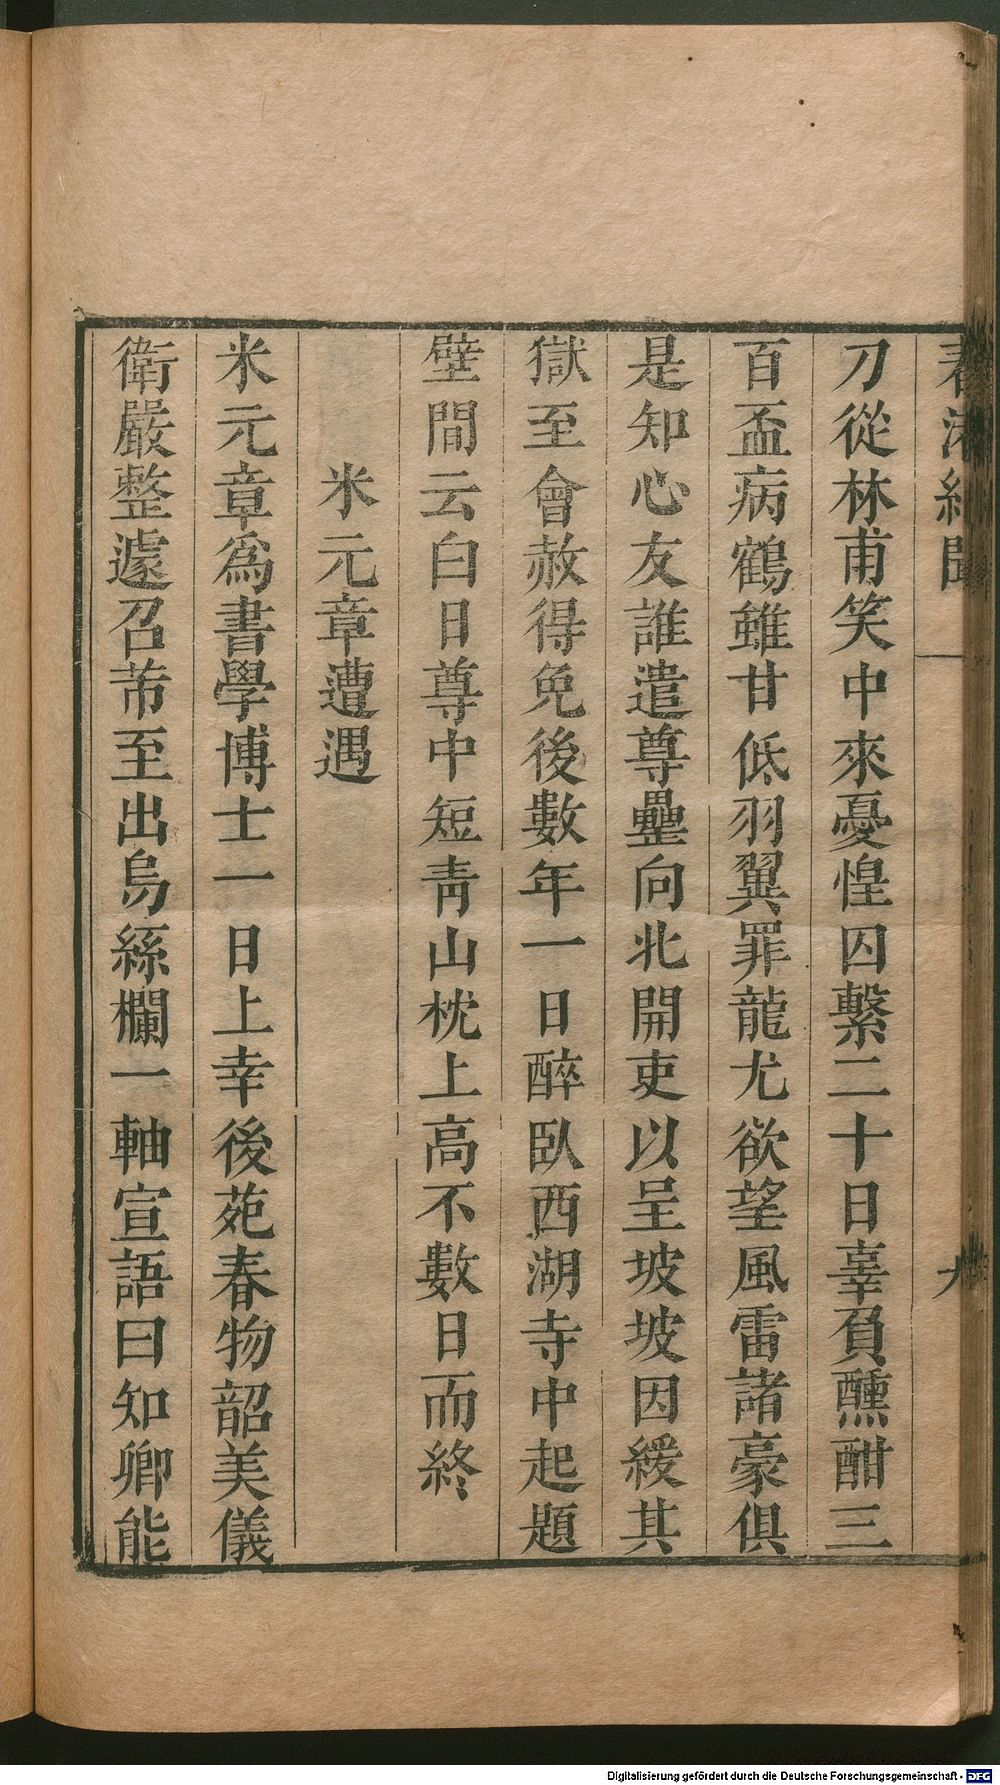 春渚紀聞
一
九
刀從林甫笑中來憂惶囚繫二十日辜負醺酣三
百盃病鶴雖甘低羽翼罪龍尤欲望風雷諸豪俱
是知心友誰遣尊罍向北開吏以呈坡坡因緩其
獄至會赦得免後數年一日醉臥西湖寺中起題
壁間云白日尊中短青山枕上高不數日而終
米元章遭遇
米元章為書學博士一日上幸後苑春物韶美儀
衛嚴整遽召芾至出烏絲欄一軸宣語曰知卿能
Digitalisierung gefördert durch die Deutsche Forschungsgemeinschaft - DFG